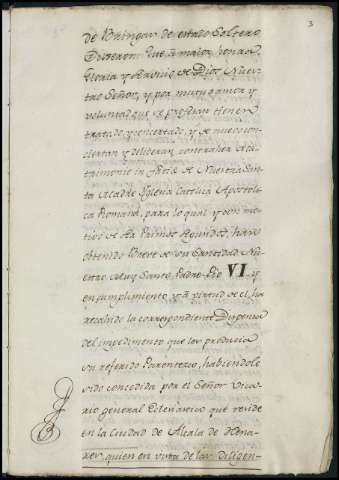 3
de Bringas de estado Soltero
Dixeron: Que à maior honra,
Gloria y servicio de Dios Nues-
tro Señor, y por mutuo amor y
voluntad que se profesan tienen
tratado, y concertado, y de nuevo con-
ciertan y deliberan contraher Ma-
trimonio in facie de Nuestra San-
ta Madre Yglesia Catolica Apostoli-
ca Romana, para lo qual y con mo-
tivo de ser Primos Segundos, han
obtenido Breve de su Santidad Nu-
estro Muy Santo Padre Pio VI. y
en cumplimiento y à virtud de el, ha
recahido la correspondiente Dispensa
del impedimento que les producia
su referido Parentezco, habiendole
sido concedida por el Señor Vica-
rio general Eclesiastico que reside
en la Ciudad de Alcala de Hena-
res, quien en vista de las diligen-